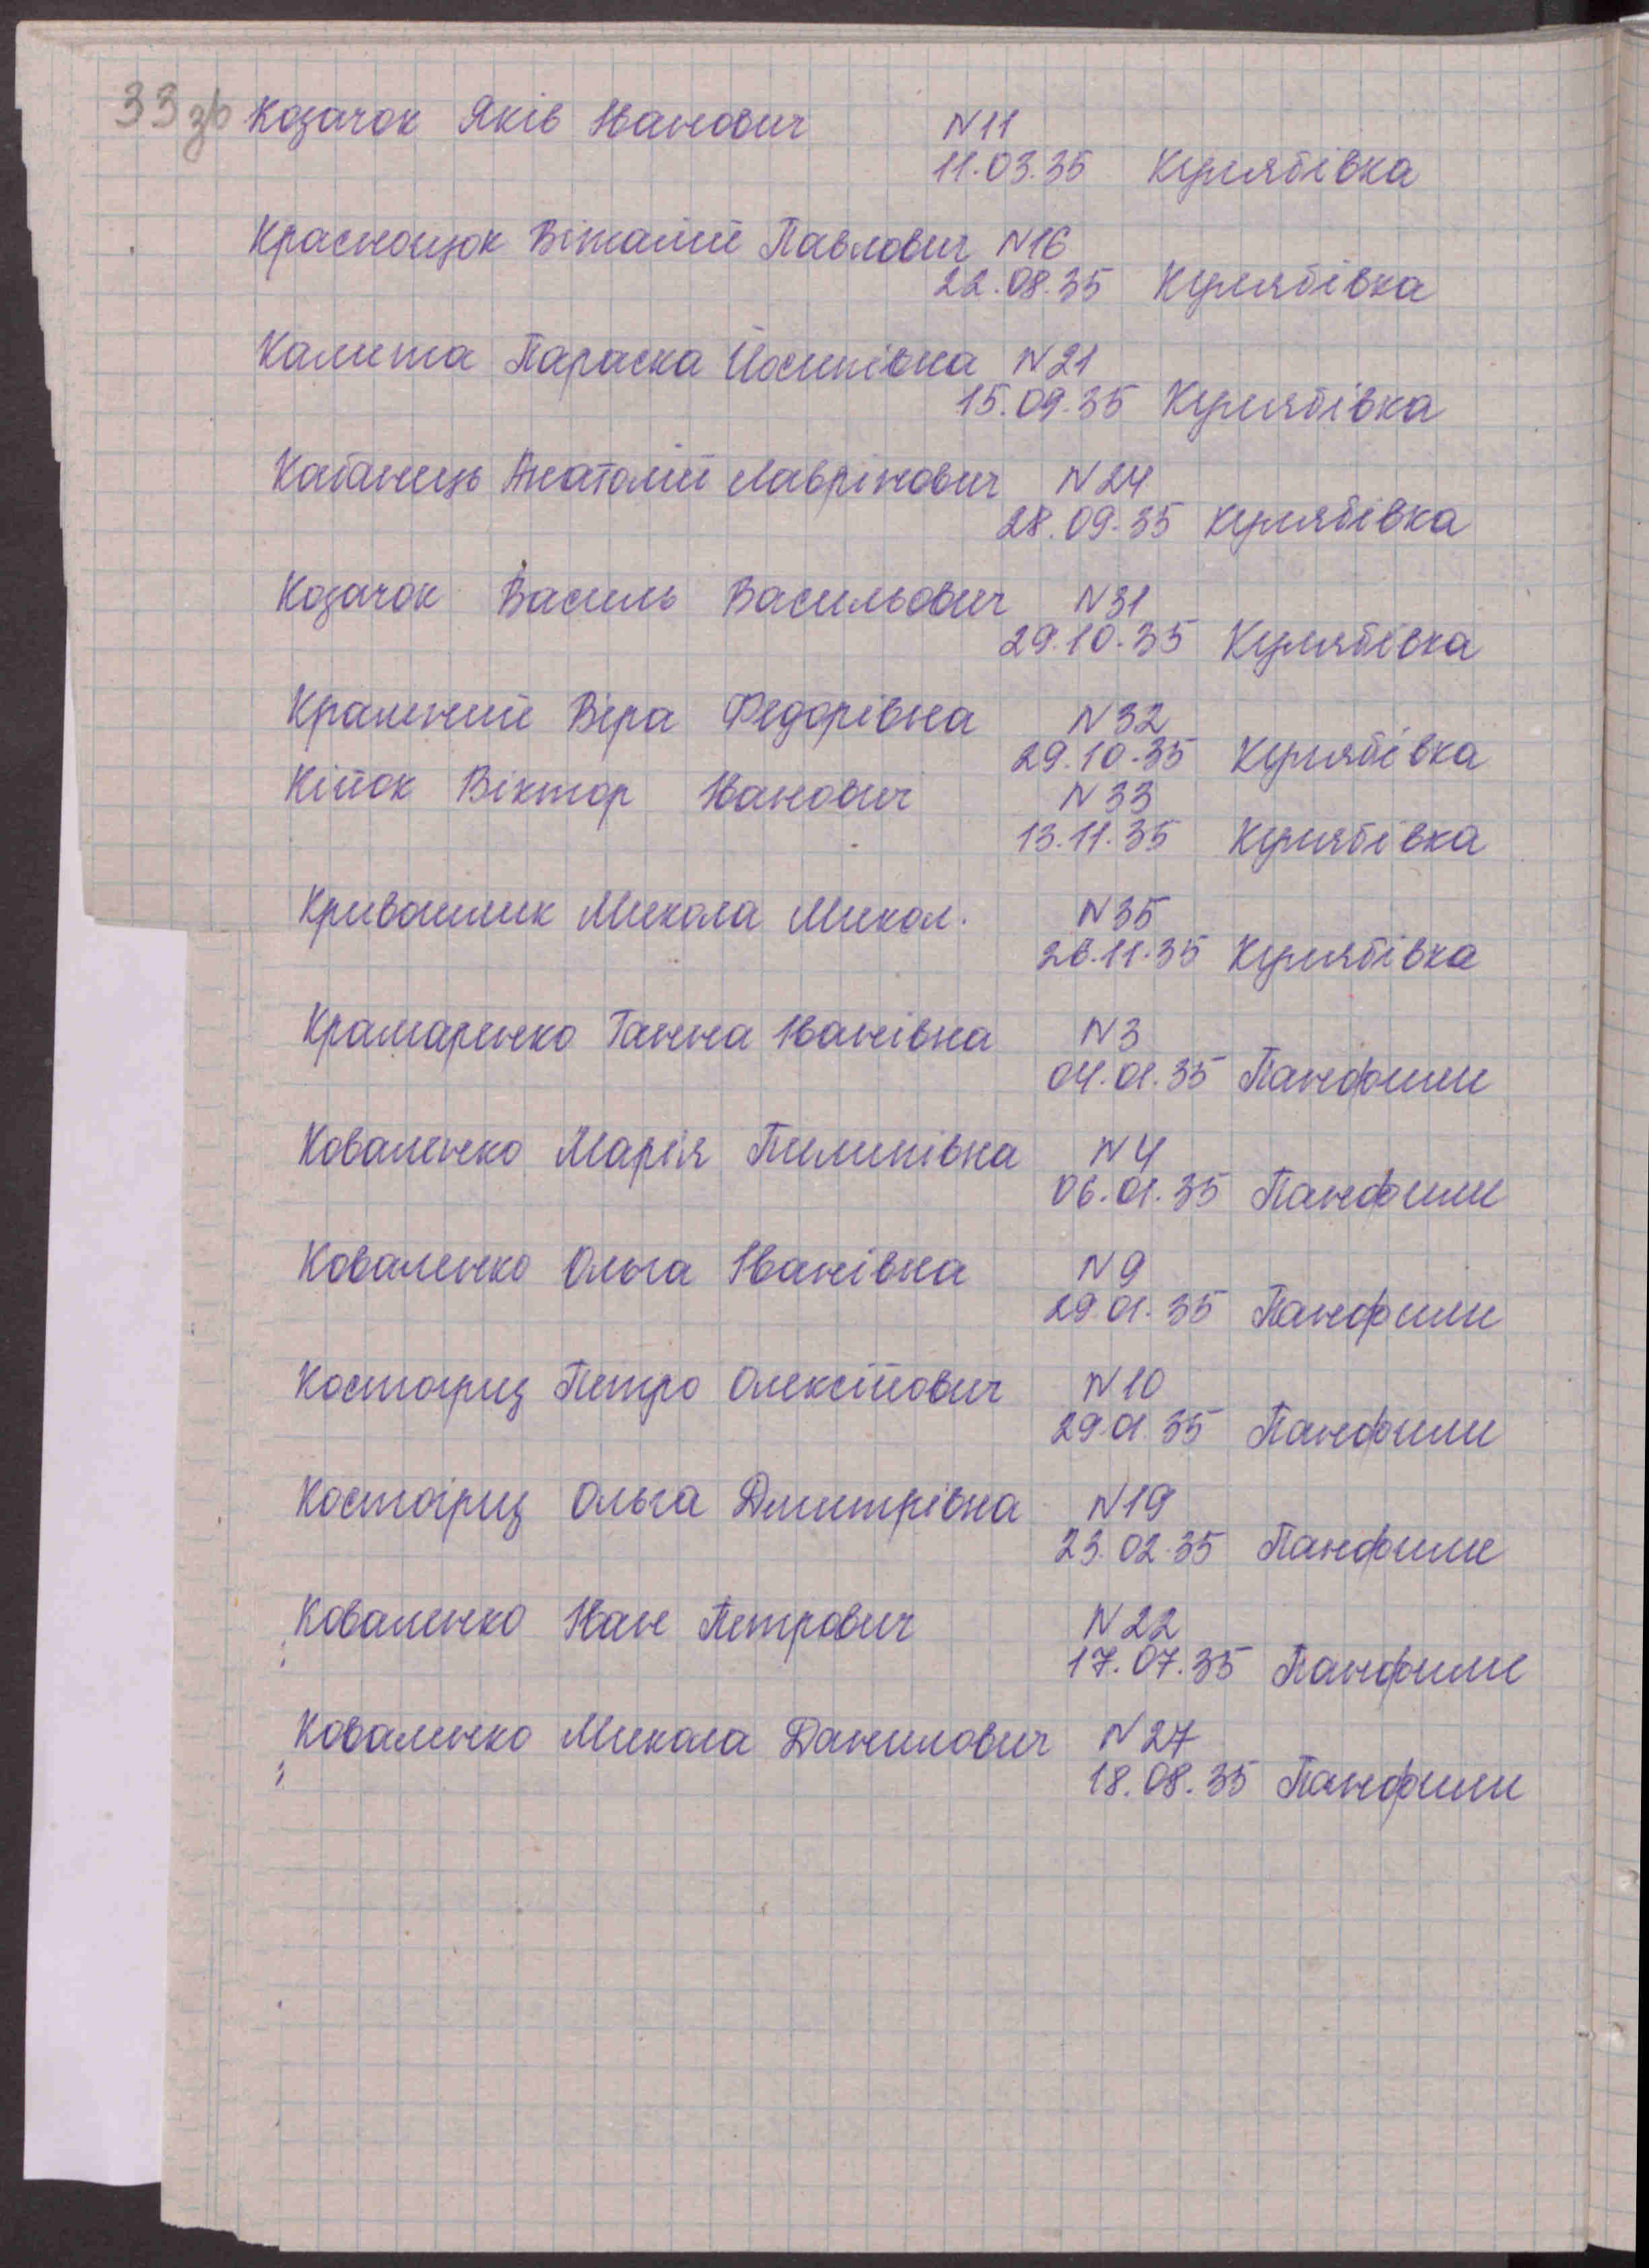 33 зв Козачок Яків Іванович N11
11.03.35 Кулябівка
Краснощок Віталій Павлович N16
22.08.35 Кулябівка
Калита Параска Йосипівна N21
15.09.35 Кулябівка
Кабанець Анатолій Лаврінович N24
28.09.35 Кулябівка
Козачок Василь Васильович N31
29.10.35 Кулябівка
Віра Федорівна N32
29.10.35 Кулябівка
Кійок Віктор Іванович N33
13.11.35 Кулябівка
Кривошлик Микола Микол. N35
26.11.35 Кулябівка
Крамаренко Ганна Іванівна N3
04.01.35 Панфили
Коваленко Марія Пилипівна N4
06.01.35 Панфили
Коваленко Ольга Іванівна N9
29.01.35 Панфили
Костогриз Петро Олексійович N10
29.01.35 Панфили
Костогриз Ольга Дмитрівна N19
23.02.35 Панфили
Коваленко Іван Петрович N22
17.07.35 Панфили
Коваленко Микола Данилович N27
18.08.35 Панфили